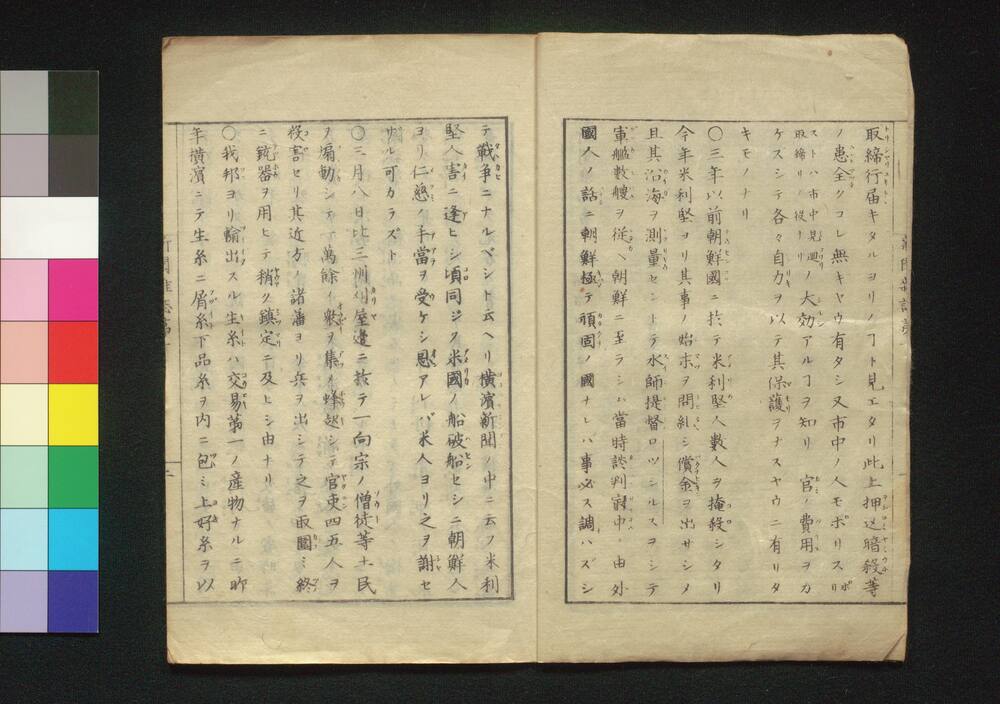 取締行届キタルヨリノヿト見エタリ此上押込暗殺等
ノ患全クコレ無キヤウ有タシ又市中ノ人モポリス
ストハ市中見廻リ
取締リノ役ナリ
ノ大効アルヿヲ知リ官ノ費用ヲカ
ケズシテ各々自力ヲ以テ其保護ヲナスヤウニ有リタ
キモノナリ
〇三年以前朝鮮國ニ於テ米利堅人數人ヲ掩殺シタリ
今年米利堅ヨリ其事ノ始末ヲ問糺シ償金ヲ出サシメ
且其沿海ヲ測量セントテ水師提督ロツシルスヲシテ
軍艦數艘ヲ従ヘ朝鮮ニ至ラシム當時談判最中ノ由外
國人ノ話ニ朝鮮極テ頑固ノ國ナレハ事必ス調ハズシ
テ戰争ニナルベシト云ヘリ横濱新聞ノ中ニ云フ米利
堅人害ニ逢ヒシ頃同ジク米國ノ船破船セシニ朝鮮人
ヨリ仁慈ノ手當ヲ受ケシ恩アレバ米人ヨリ之ヲ謝セ
サル可カラズト
〇三月八日比三州刈屋邊ニ於テ一向宗ノ僧徒等土民
ヲ煽動シテ一萬餘ノ衆ヲ集メ蜂起シテ官吏四五人ヲ
殺害セリ其近方ノ諸藩ヨリ兵ヲ出シテ之ヲ取圍ミ終
ニ銃器ヲ用ヒテ稍ク鎮定ニ及ヒシ由ナリ
〇我邦ヨリ輸出スル生糸ハ交易第一ノ産物ナルニ昨
年横濱ニテ生糸ニ屑糸下品糸ヲ内ニ包ミ上好糸ヲ以